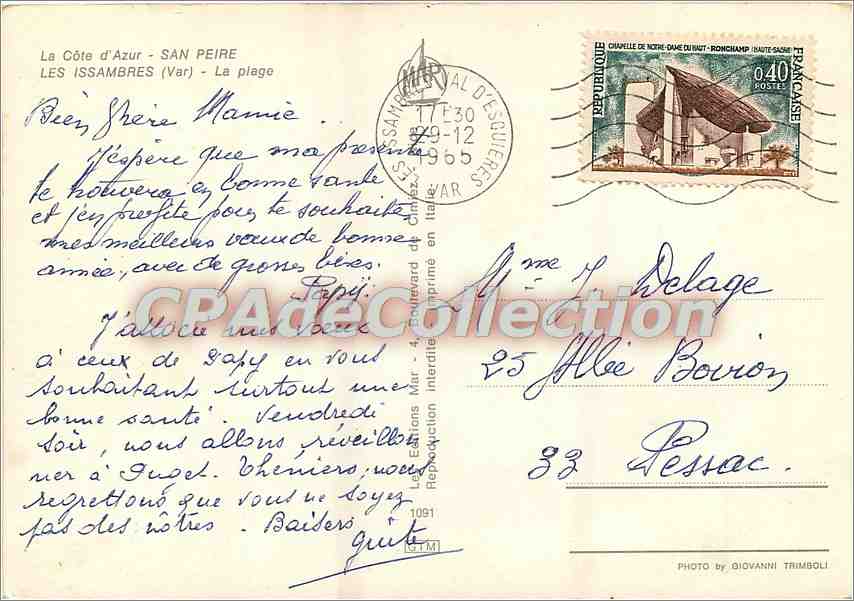 La Côte d'Azur - SAN PEIRE
LES ISSAMBRES (Var) - La plage
Bien chère Mamie.
J'espère que ma présente
te trouvera en bonne santé
et j'en profite pour te souhaiter
mes meilleurs vœux de bonne
année, avec de grosses bises.
Papy.
J'associe mes vœux
à ceux de Papy en vous
souhaitant surtout une
bonne santé. Vendredi
soir, nous allons réveillon-
ner à Puget-Théniers; nous
regrettons que vous ne soyez
pas des nôtres. Baisers
Guite
MAR
LES ISSAMBRES VAL D'ESQUIERES
17H30
29-12
1965
VAR
Les Editions Mar - 4, Boulevard de Cimiez
Reproduction interdite - Imprimé en Italie
1091
GTM
CHAPELLE DE NOTRE-DAME DU HAUT - RONCHAMP (HAUTE-SAÔNE)
REPUBLIQUE
FRANÇAISE
0,40
POSTES
Mme J. Delage
25 Allée Bovion
33 Pessac.
PHOTO by GIOVANNI TRIMBOLI
CPAdeCollection